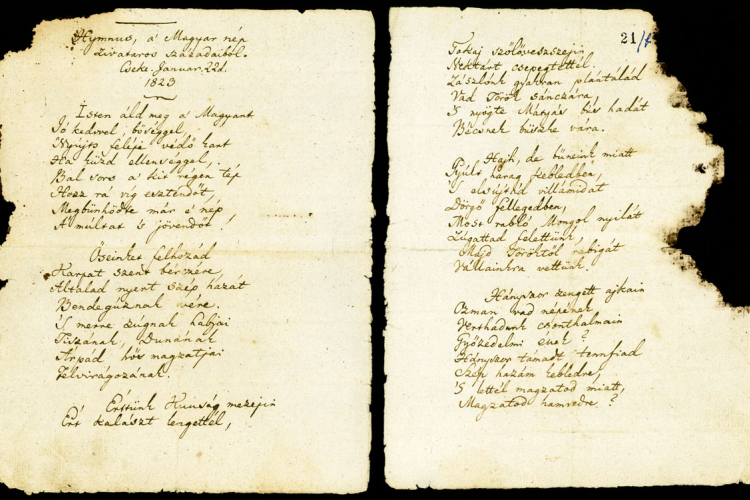 Hymnus, a' Magyar nép
zivataros századaiból.
Cseke Januar. 22d.
1823
Isten áld meg a' Magyart
Jó kedvvel, bőséggel,
Nyújts feléje védő kart
Ha küzd ellenséggel,
Bal sors a' kit régen tép
Hozz rá víg esztendőt,
Megbűnhödte már e' nép
A' multat 's jövendőt!
Őseinket felhozád
Kárpát szent bérczére,
Általad nyert szép hazát
Bendegúznak vére.
'S merre zúgnak habjai
Tiszának, Dunának
Árpád hős magzatjai
Felvirágozának.
Értünk Kunság mezején
Ért kalászt lengettél,
21/
Tokaj szőlővesszejin
Nektárt csepegtettél.
Zászlónk gyakran plántálád
Vad Török sánczára,
'S nyögte Mátyás bús hadát
Bécsnek büszke vára.
Hajh, de bűneink miatt
Gyúlt harag kebledben,
'S elsújtád villámidat
Dörgő fellegedben,
Most rabló Mongol nyilát
Zúgattad felettünk,
Majd Töröktől rabigát
Vállainkra vettünk.
Hányszor zengett ajkain
Ozman vad népének
Vert hadunk csonthalmain
Győzedelmi ének?
Hányszor támadt tennfiad
Szép hazám kebledre,
'S lettél magzatod miatt,
Magzatod hamvedre?